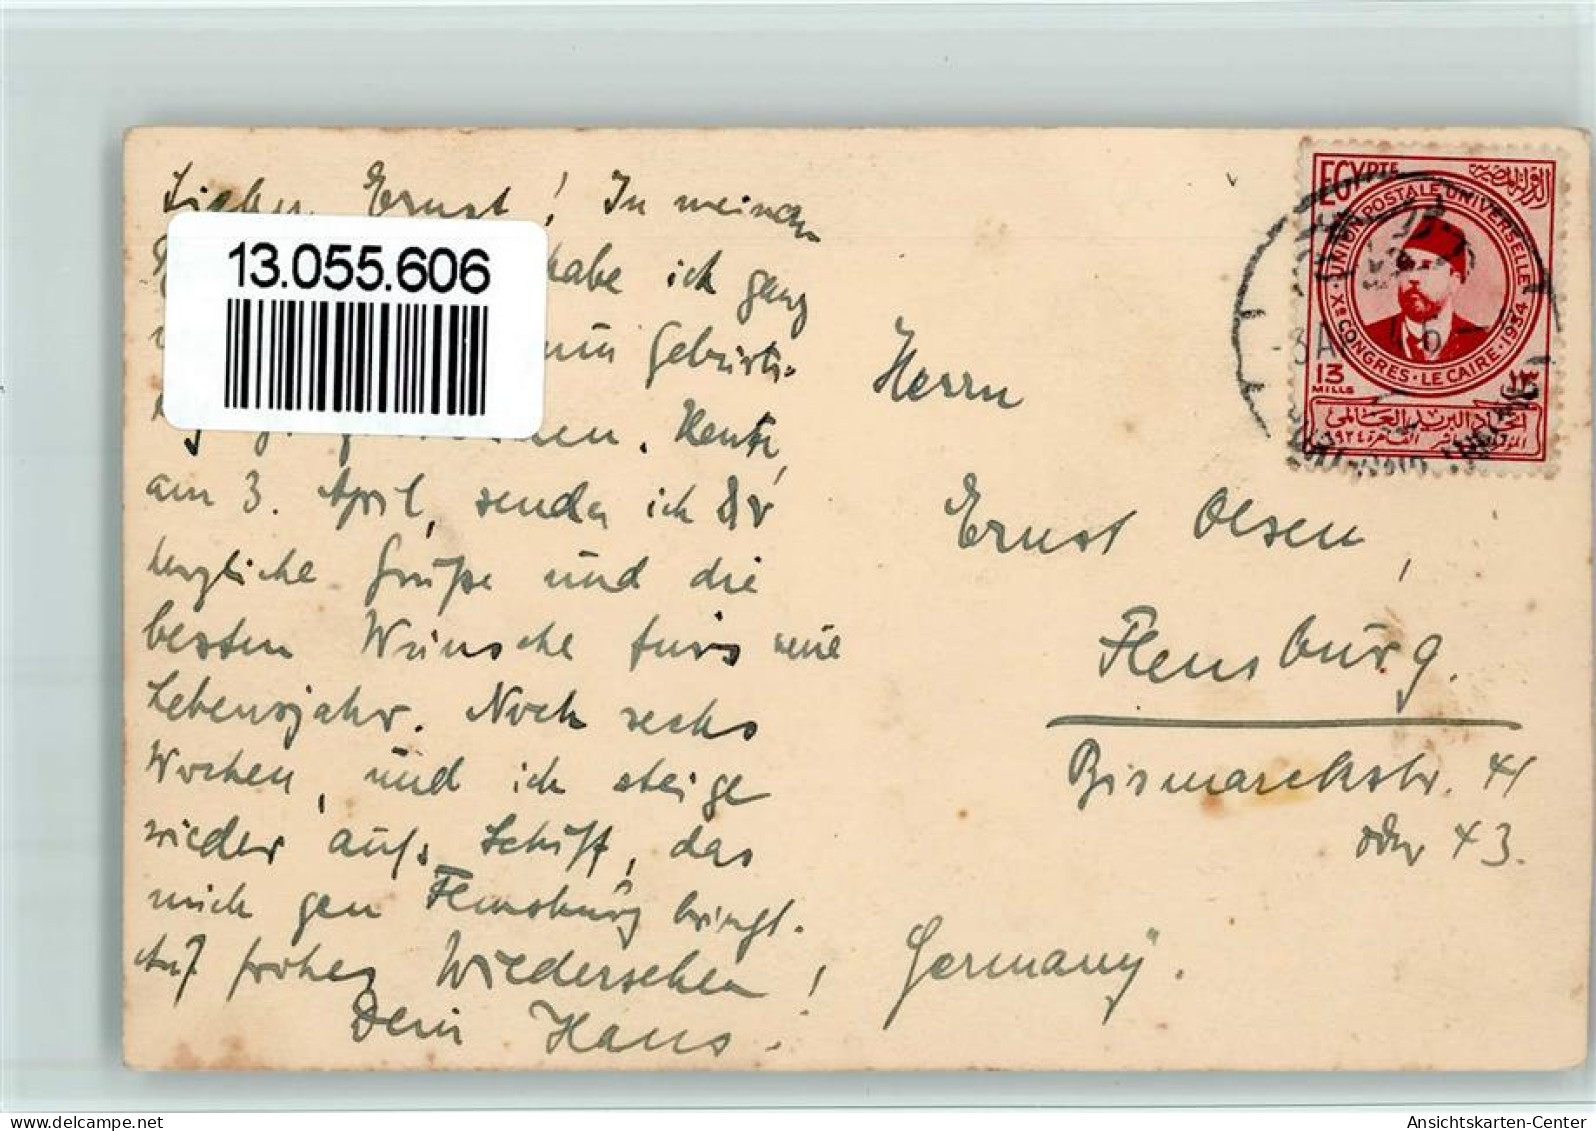 Lieber Ernst! In meinem
habe ich ganz
Geburts-
Heute,
am 3. April, sende ich Dir
herzliche Grüße und die
besten Wünsche fürs neue
Lebensjahr. Noch sechs
Wochen, und ich steige
wieder aufs Schiff, das
mich gen Flensburg bringt.
Auf frohes Wiedersehen!
Dein Hans.
13.055.606
Herrn
Ernst Olsen,
Flensburg.
Bismarckstr. 41
oder 43.
Germany.
EGYPTE
الدولة المصرية
UNION POSTALE UNIVERSELLE
Xe CONGRES · LE CAIRE · 1934
13 ١٣
MILLS
اتحاد البريد العالمى
القاهرة ١٩٣٤
Ansichtskarten-Center